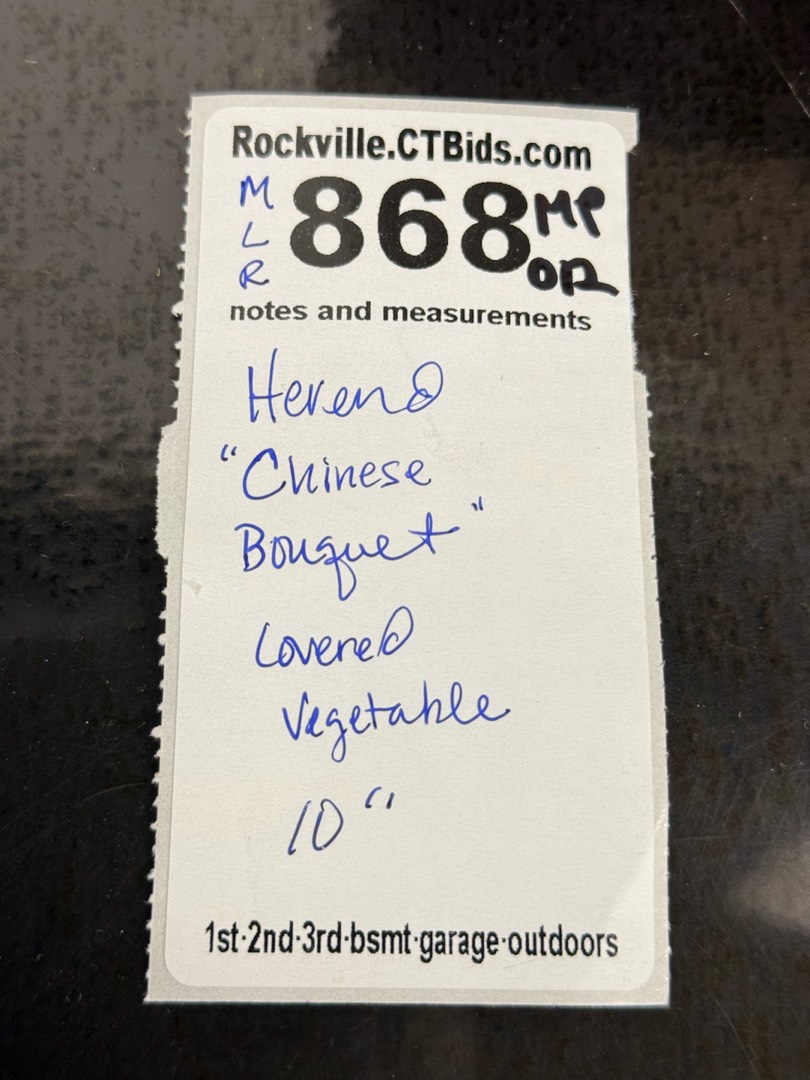 Rockville.CTBids.com
M
L
R
868
MP
OR
notes and measurements
Herend
"Chinese
Bouquet"
Covered
Vegetable
10"
1st·2nd·3rd·bsmt·garage·outdoors